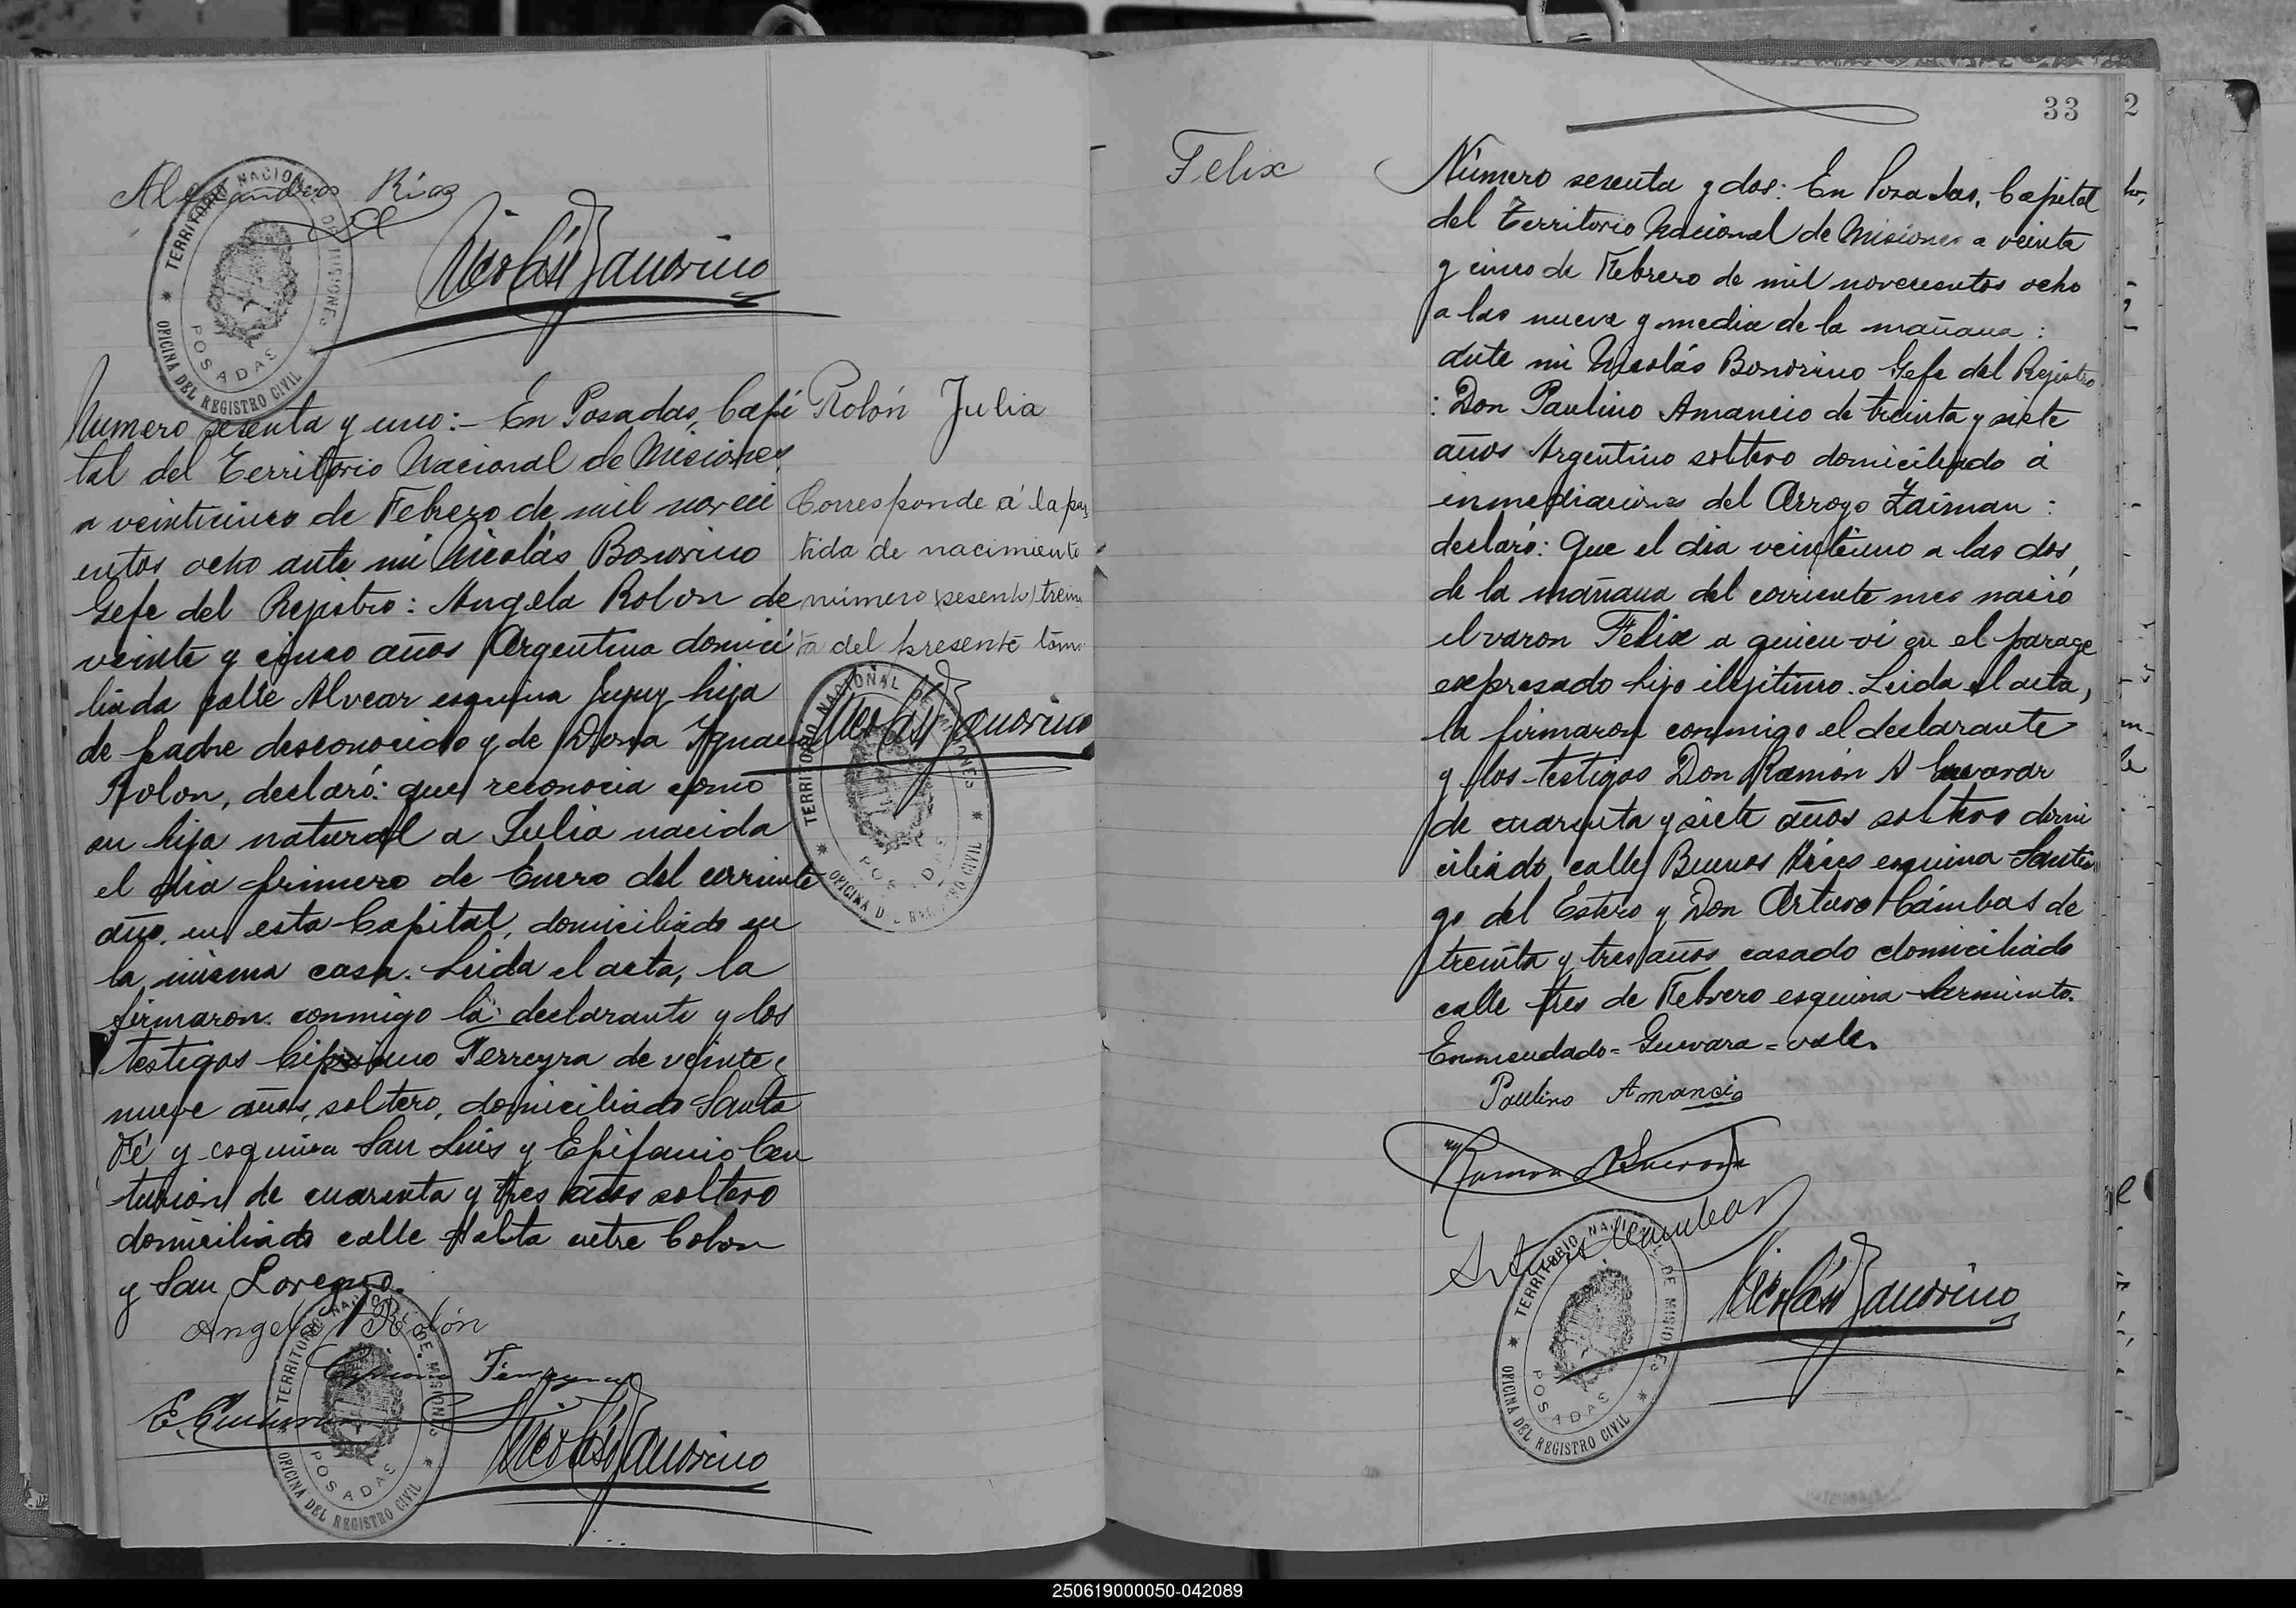 Alejandros Ríos
Nicolás Bonorino
TERRITORIO NACIONAL DE MISIONES
POSADAS
OFICINA DEL REGISTRO CIVIL
Numero sesenta y uno:- En Posadas, Capi
tal del Territorio Nacional de Misiones
a veinticinco de Febrero de mil noveci
entos ocho ante mi Nicolás Bonorino
Gefe del Registro: Angela Rolon de
veinte y cinco años Argentina domici
liada calle Alvear esquina Jujuy hija
de padre desconocido y de Doña Ignacia
Rolon, declaró: que reconocia como
su hija natural a Julia nacida
el dia primero de Enero del corriente
año. en esta Capital, domiciliado en
la misma casa. Leida el acta, la
firmaron conmigo la declarante y los
testigos Cipriano Ferreyra de veinte
nueve años, soltero, domiciliado Santa
Fé y esquina San Luis y Epifanio Cen
turion de cuarenta y tres años soltero
domiciliado calle Salta entre Colon
y San Lorenzo.
Angela Rolón
Cipriano Ferreyra
E. Centurion
Nicolás Bonorino
TERRITORIO NACIONAL DE MISIONES
POSADAS
OFICINA DEL REGISTRO CIVIL
Rolón Julia
Corresponde á la par
tida de nacimiento
número (sesenta) trein
ta del presente tomo
Nicolás Bonorino
TERRITORIO NACIONAL DE MISIONES
POSADAS
OFICINA DEL REGISTRO CIVIL
33
2
Felix
Número sesenta y dos: En Posadas, Capital
del Territorio Nacional de Misiones a veinte
y cinco de Febrero de mil novecientos ocho
a las nueve y media de la mañana:
ante mi Nicolás Bonorino Gefe del Registro
: Don Paulino Amancio de treinta y siete
años Argentino soltero domiciliado á
inmediaciones del Arroyo Zaiman:
declaró: Que el dia veintiuno a las dos
de la mañana del corriente mes nació
el varon Felix a quien vi en el parage
expresado hijo ilejitimo. Leida el acta,
la firmaron conmigo el declarante
y los testigos Don Ramón A Guevara
de cuarenta y siete años soltero domi
ciliado calle Buenos Aires esquina Santia
go del Estero y Don Arturo Cámbas de
treinta y tres años casado domiciliado
calle tres de Febrero esquina Sarmiento.
Enmendado= Guevara= vale.
Paulino Amancio
Ramon A Guevara
Arturo Cambas
Nicolás Bonorino
TERRITORIO NACIONAL DE MISIONES
POSADAS
OFICINA DEL REGISTRO CIVIL
250619000050-042089